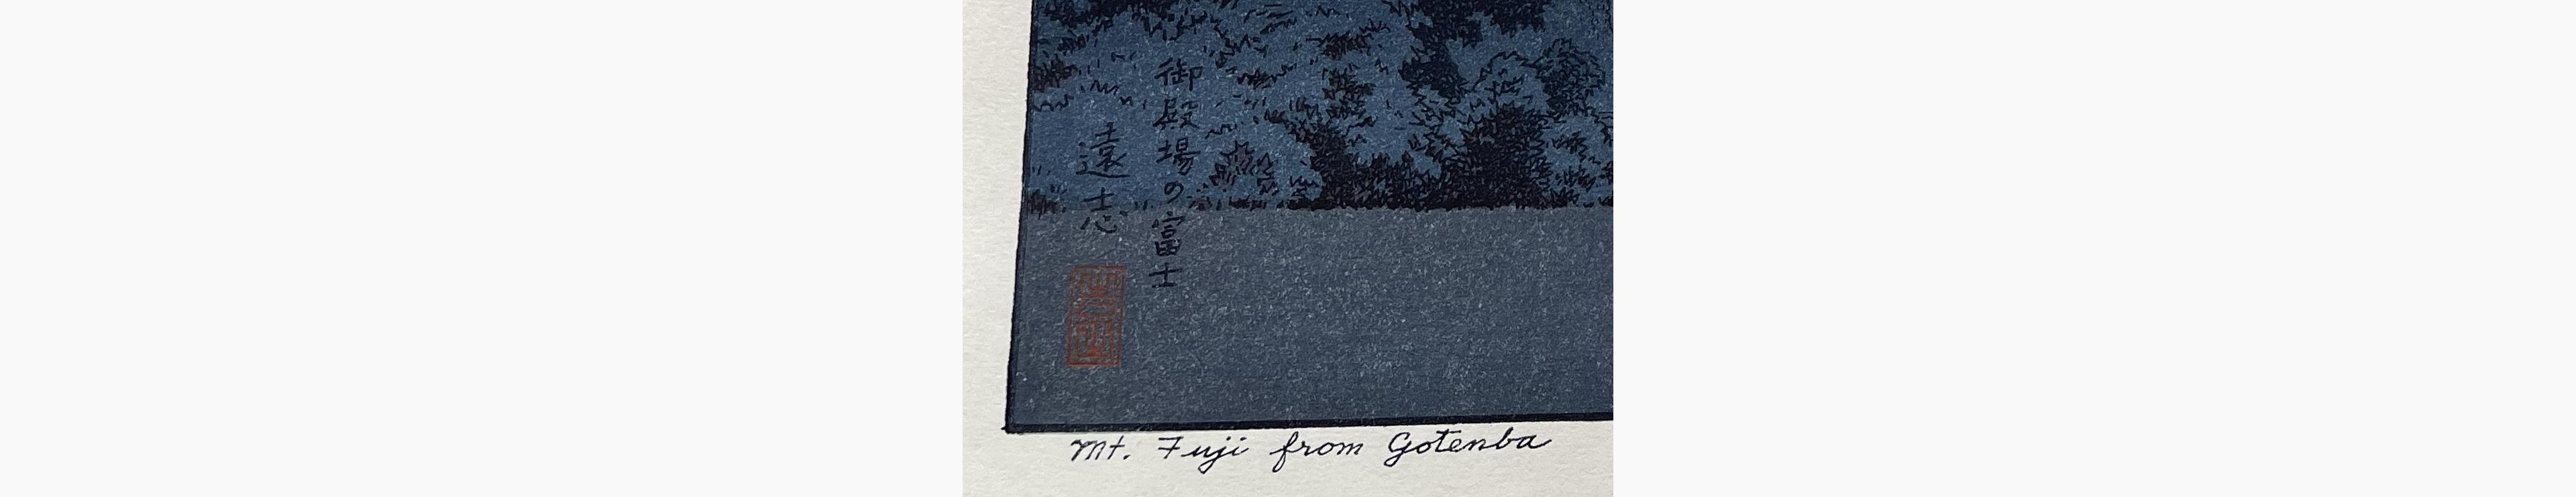 御殿場の富士
遠志
Mt. Fuji from Gotenba